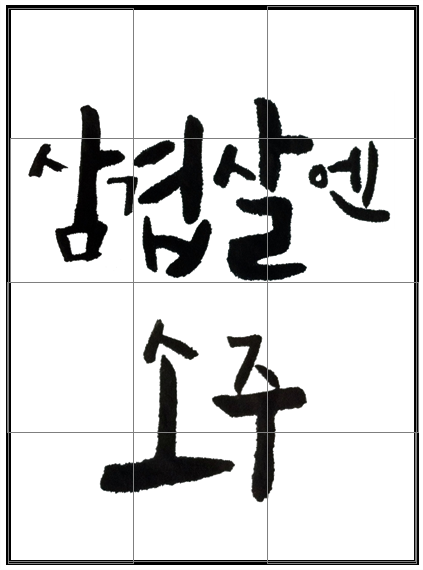 삼겹살엔
소주